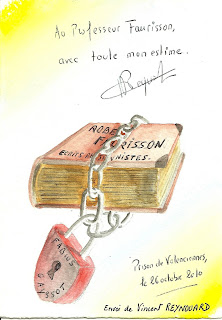 Au Professeur Faurisson,
avec toute mon estime.
Reynouard
ROBERT
FAURISSON
ECRITS REVISIONNISTES.
FABIUS
GAYSSOT
Prison de Valenciennes,
le 26 octobre 2010
Envoi de Vincent REYNOUARD